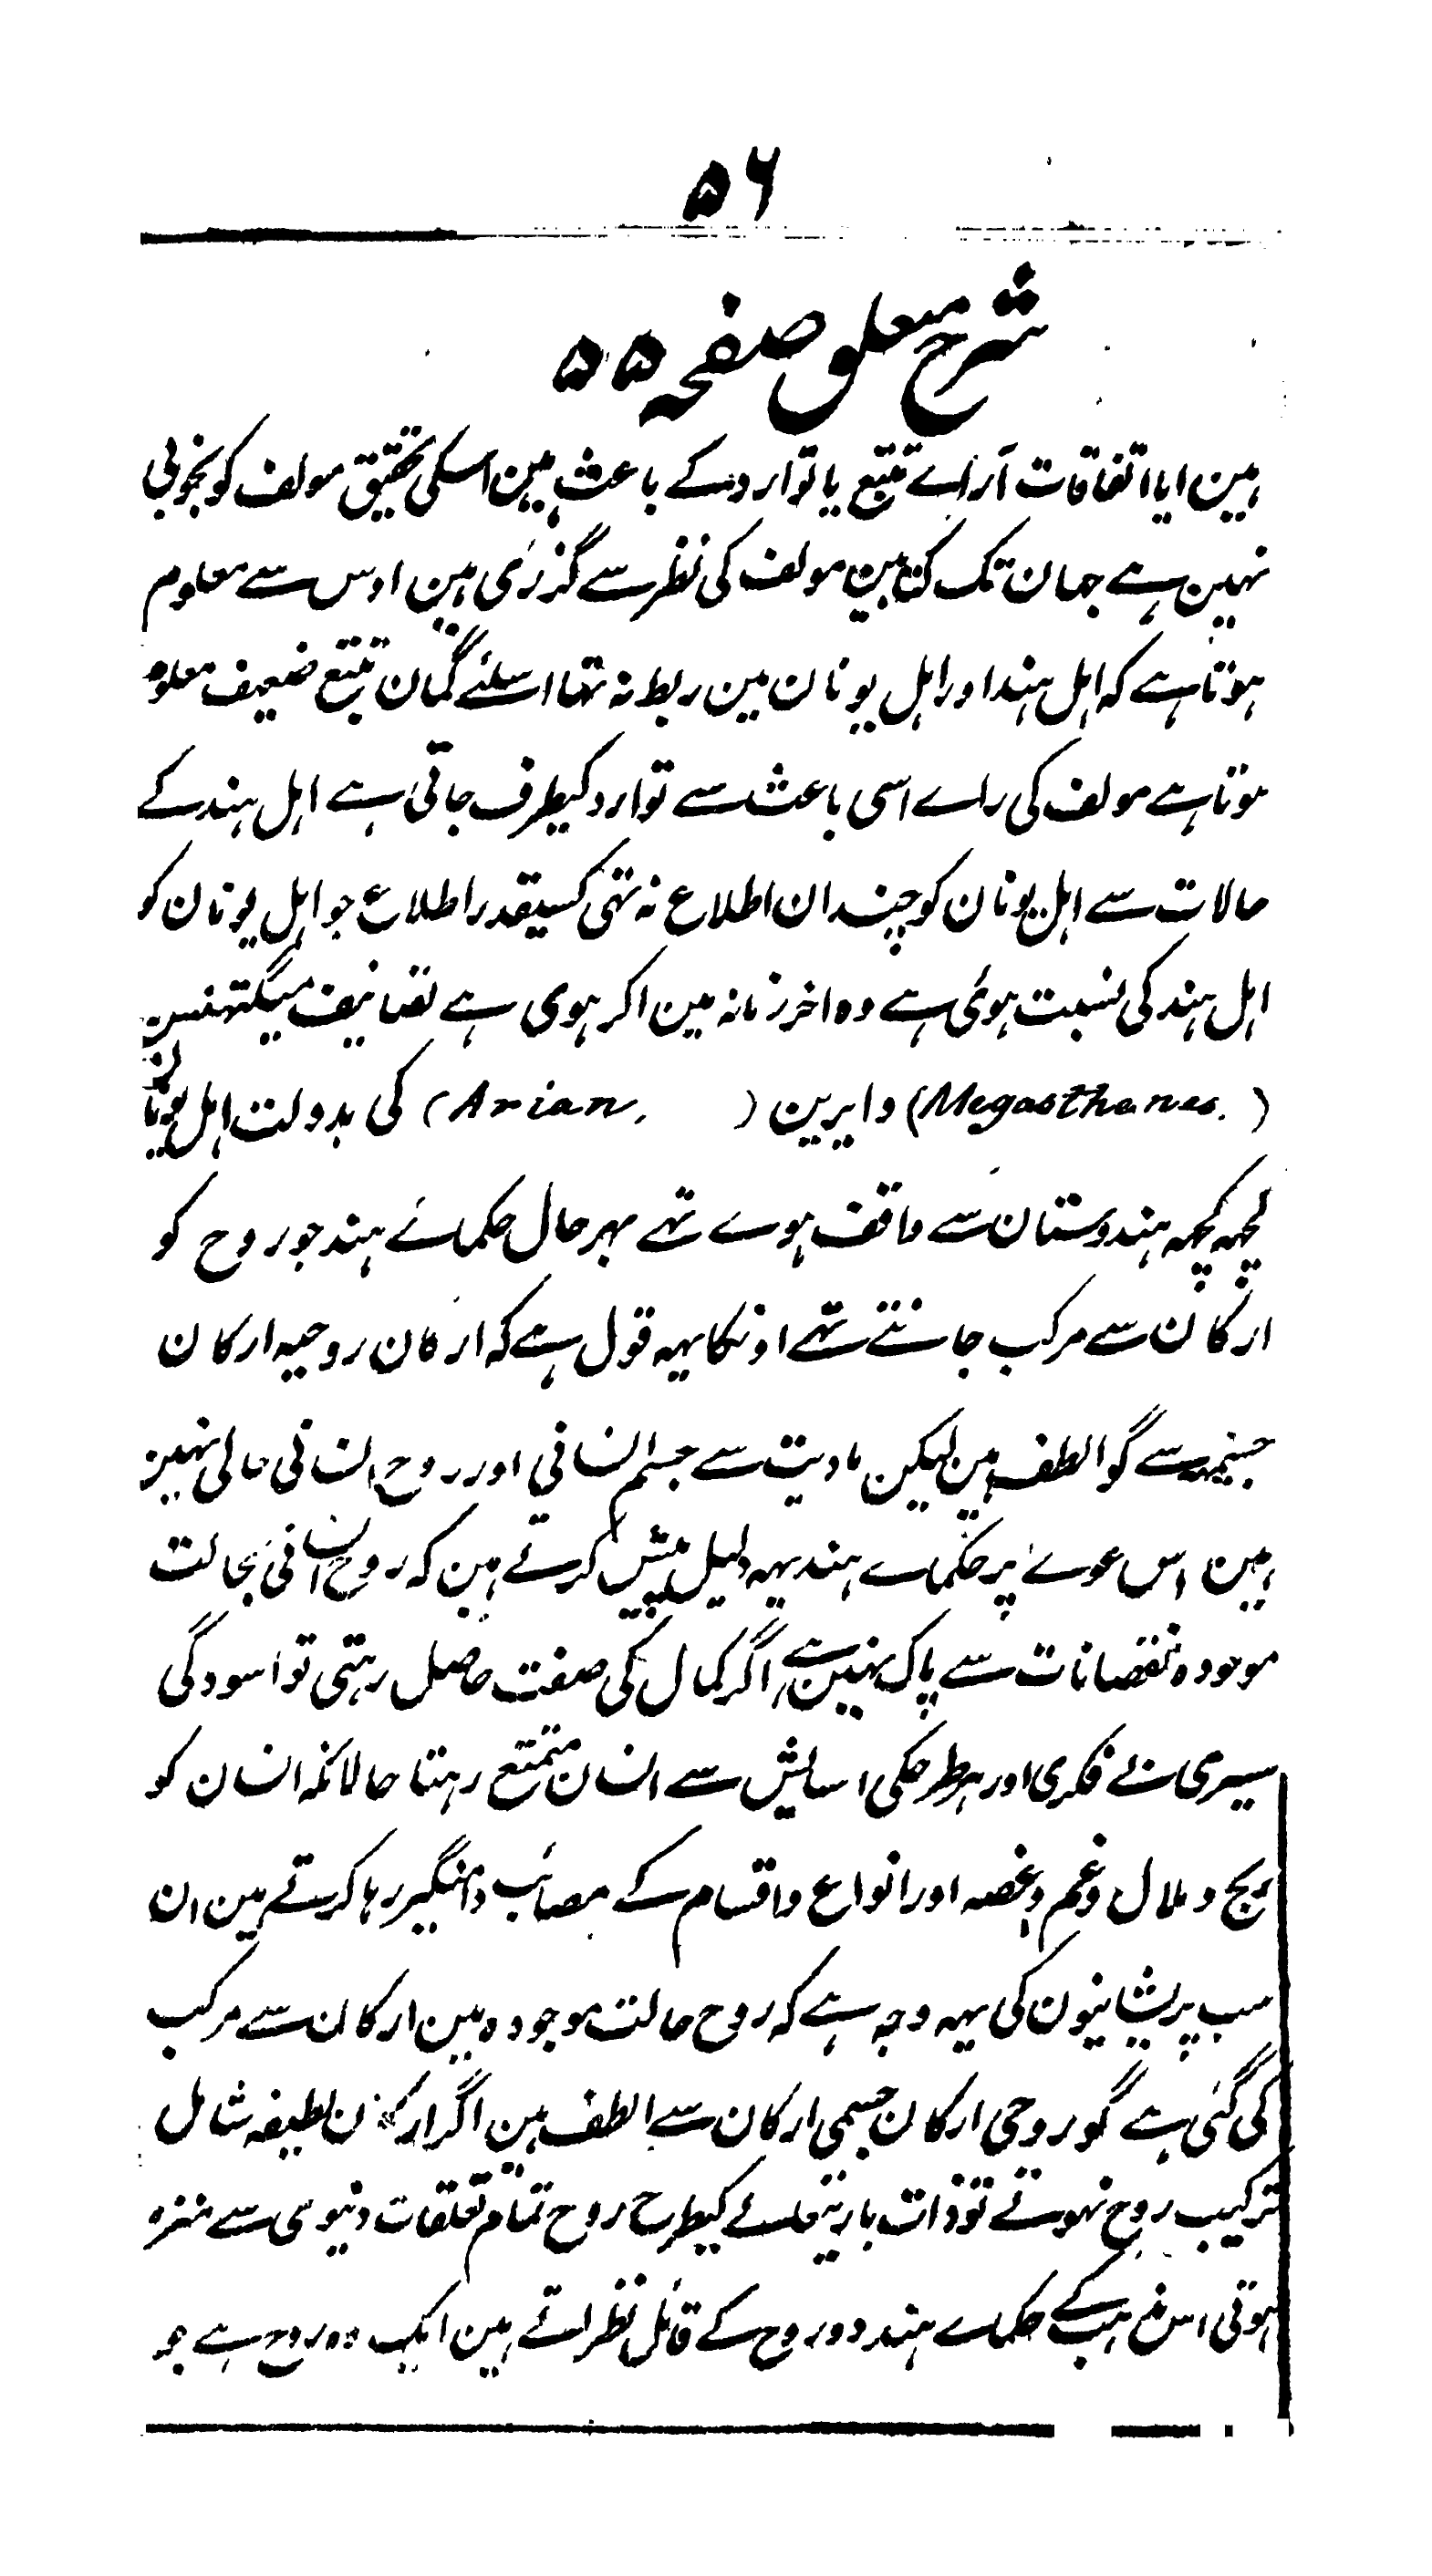 ۵۶
شرح متعلق صفحہ ۵۵
ہین ایا اتفاقات آراے تتبع یا توارد کے باعث ہین اسکی تحقیق مولف کو بخوبی
نہین ہے جہان تک کتابین مولف کی نظر سے گذری ہین اوس سے معلوم
ہوتا ہے کہ اہل ہند اور اہل یونان مین ربط نہ تھا اسلئے گمان تتبع ضعیف معلوم
ہوتا ہے مولف کی راے اسی باعث سے توارد کیطرف جاتی ہے اہل ہند کے
حالات سے اہل یونان کو چندان اطلاع نہ تہی کسیقدر اطلاع جو اہل یونان کو
اہل ہند کی نسبت ہوئی ہے وہ اخر زمانہ مین اکر ہوی ہے تصانیف میگتھنس
(Megasthenes.) و ایرین (Arian.) کی بدولت اہل یونان
کچھہ کچھہ ہندوستان سے واقف ہوے تہے بہر حال حکمائے ہند جو روح کو
ارکان سے مرکب جانتے تہے اونکا یہہ قول ہے کہ ارکان روحیہ ارکان
جسمیہ سے گو الطف ہین لیکن مادیت سے جسم انسانی اور روح انسانی خالی نہین
ہین اس دعوے پر حکماے ہند یہہ دلیل پیش کرتے ہین کہ روح انسانی بحالت
موجودہ نقصانات سے پاک نہین ہے اگر کمال کی صفت حاصل رہتی تو اسودگی
سیری بے فکری اور ہر طرحکی اسایش سے انسان متمتع رہتا حالانکہ انسان کو
رنج و ملال و غم و غصہ اور انواع و اقسام کے مصائب دامنگیر رہا کرتے ہین ان
سب پریشانیون کی یہہ وجہ ہے کہ روح حالت موجودہ مین ارکان سے مرکب
کی گئی ہے گو روحی ارکان جسمی ارکان سے الطف ہین اگر ارکان لطیفہ شامل
ترکیب روح نہوتے تو ذات باریتعالے کیطرح روح تمام تعلقات دنیوی سے منزہ
ہوتی اس مذہب کے حکماے ہند دو روح کے قائل نظر اتے ہین ایک وہ روح ہے جو